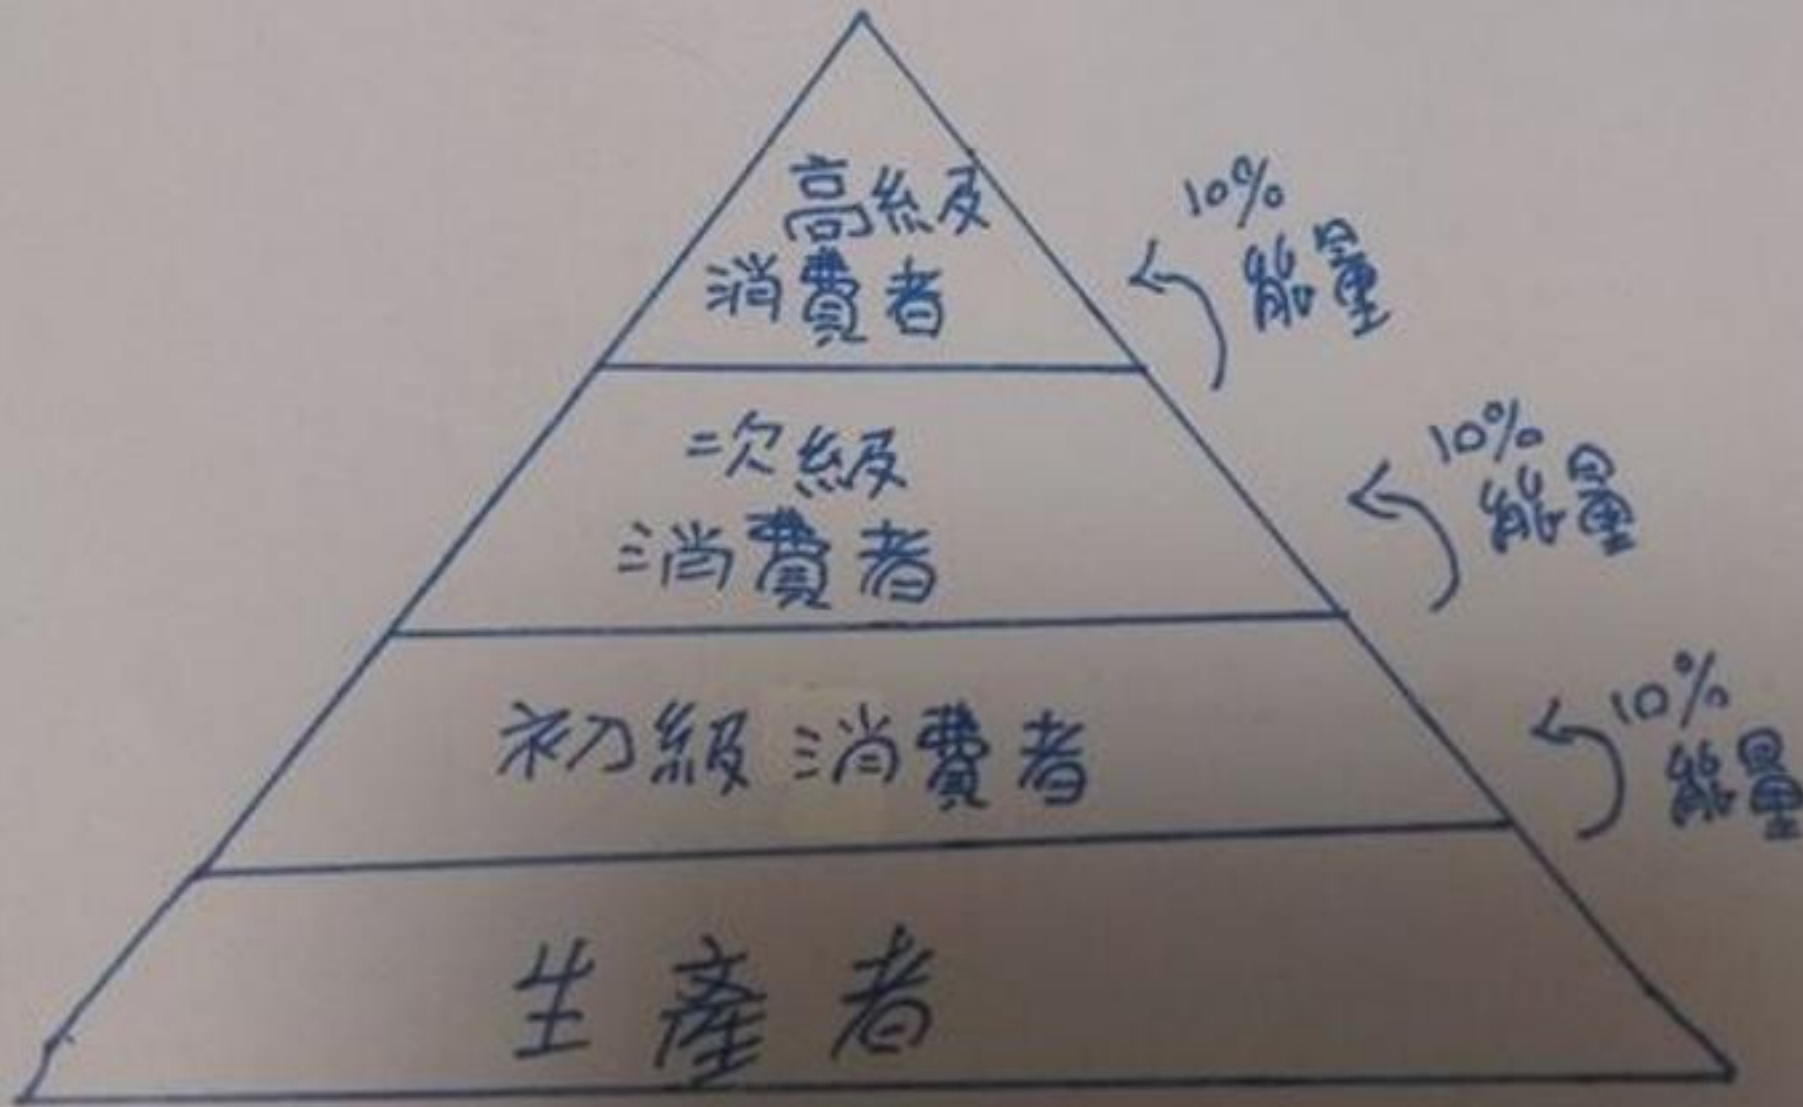 高級
消費者
10%
能量
二次級
消費者
10%
能量
初級消費者
10%
能量
生產者